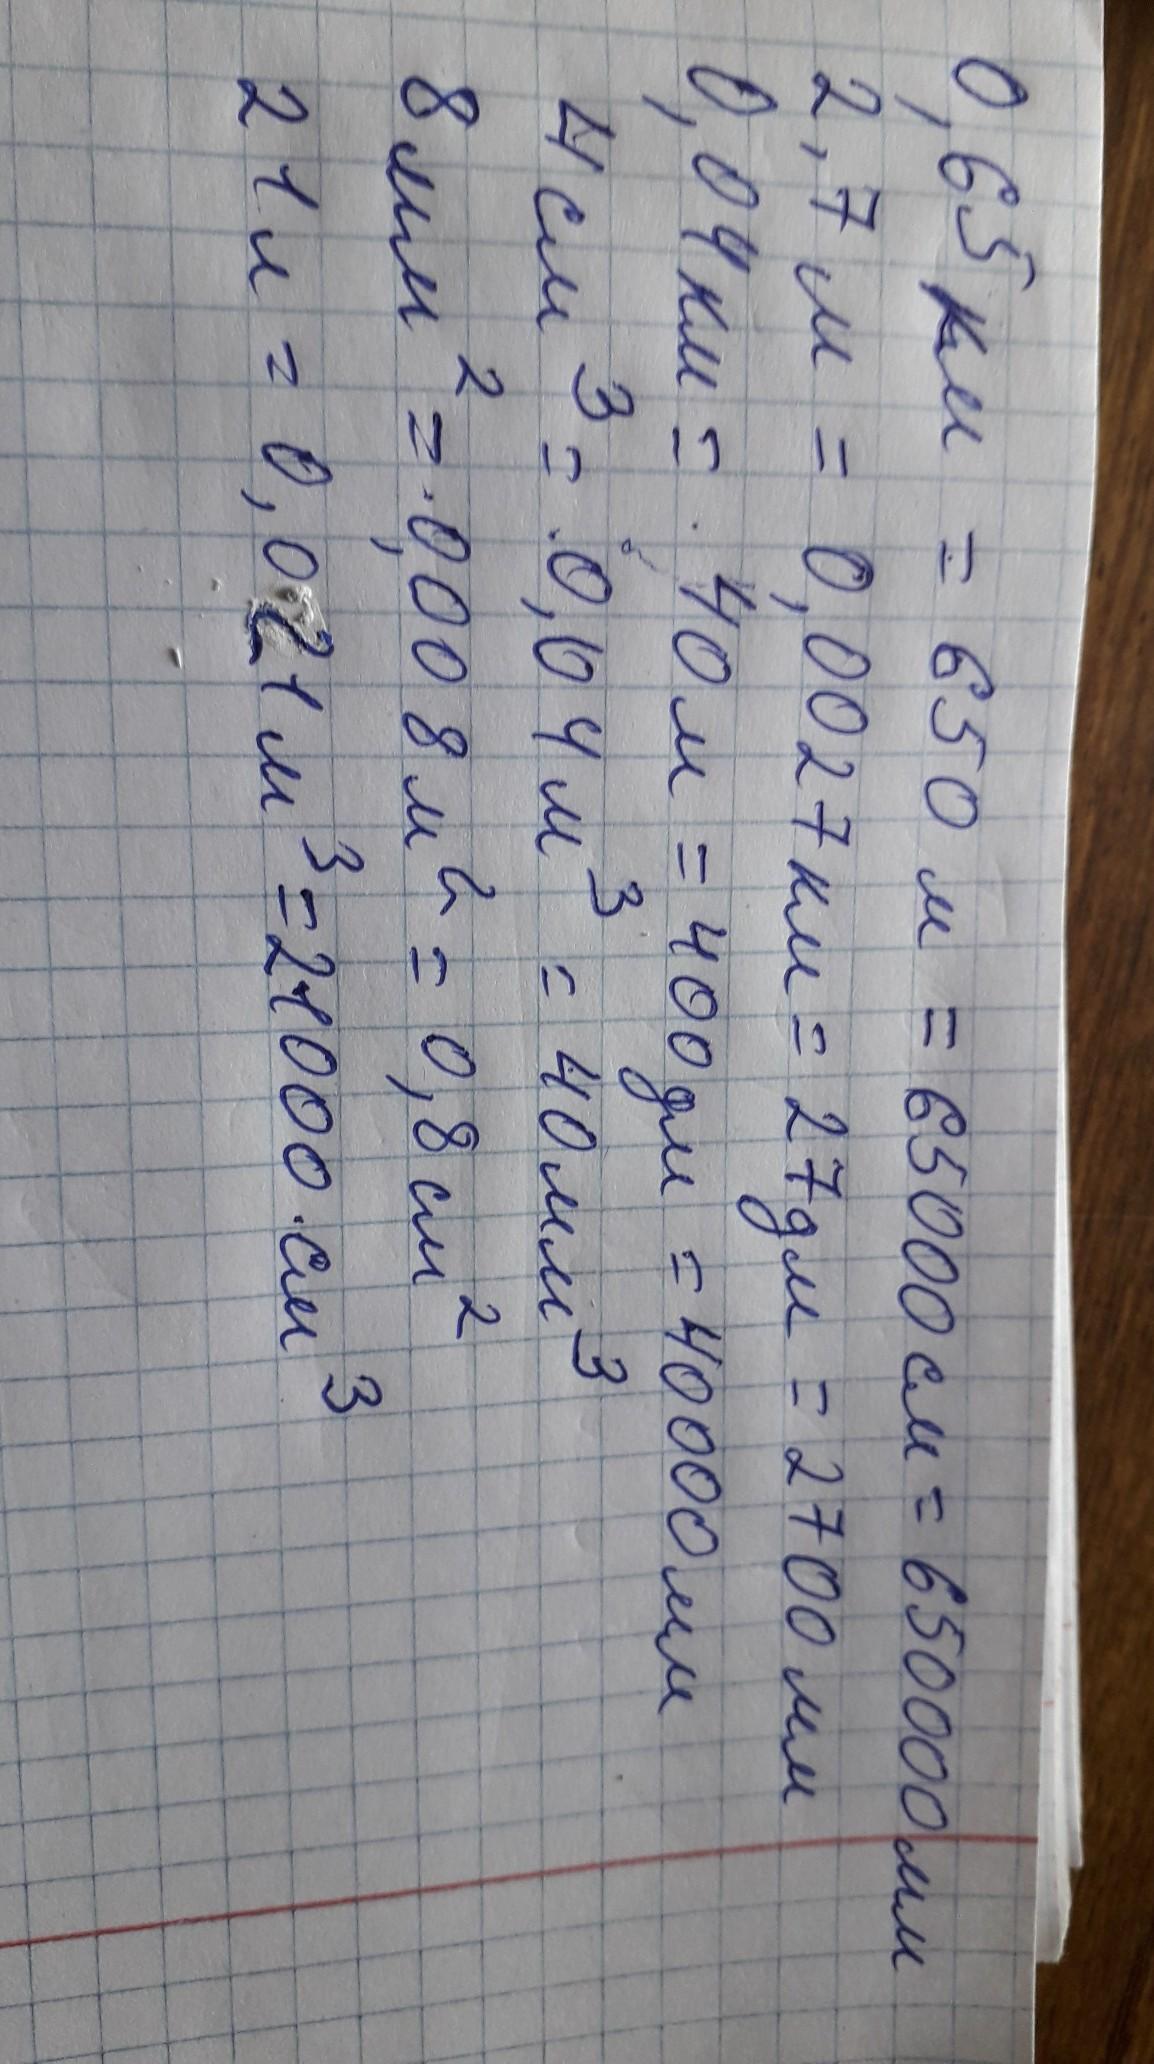 0,65 км = 650 м = 65000 см = 650000 мм
2,7 м = 0,0027 км = 27 дм = 2700 мм
0,04 км = 40 м = 400 дм = 40000 мм
4 см³ = 0,04 м³ = 40 мм³
8 мм² = 0,008 м² = 0,8 см²
21 л = 0,021 м³ = 21000 см³